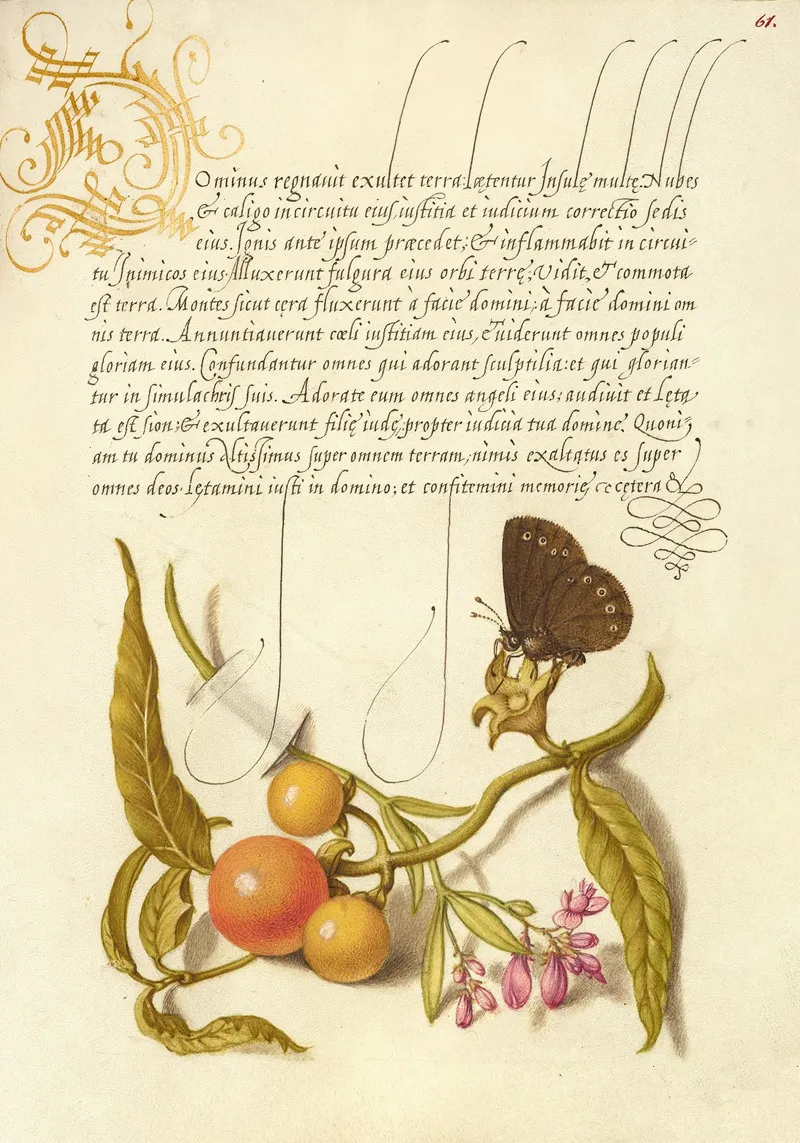 61.
Dominus regnavit exultet terra: lætentur Insulę multę. Nubes
& caligo in circuitu eius, iustitia et iudicium correctio sedis
eius. Ignis ante ipsum præcedet, & inflammabit in circui=
tu Inimicos eius Alluxerunt fulgura eius orbi terrę; Vidit, & commota
est terra. Montes sicut cera fluxerunt à facie domini; à facie domini om
nis terra. Annuntiauerunt cæli iustitiam eius, & uiderunt omnes populi
gloriam eius. Confundantur omnes qui adorant sculptilia: et qui glorian=
tur in simulachris suis. Adorate eum omnes angeli eius; audiuit et lęta
ta est sion; & exultauerunt filię iudę, propter iudicia tua domine. Quoni,
am tu dominus Altissimus super omnem terram, nimis exaltatus es super
omnes deos. Lętamini iusti in domino; et confitemini memorię cę cętera &